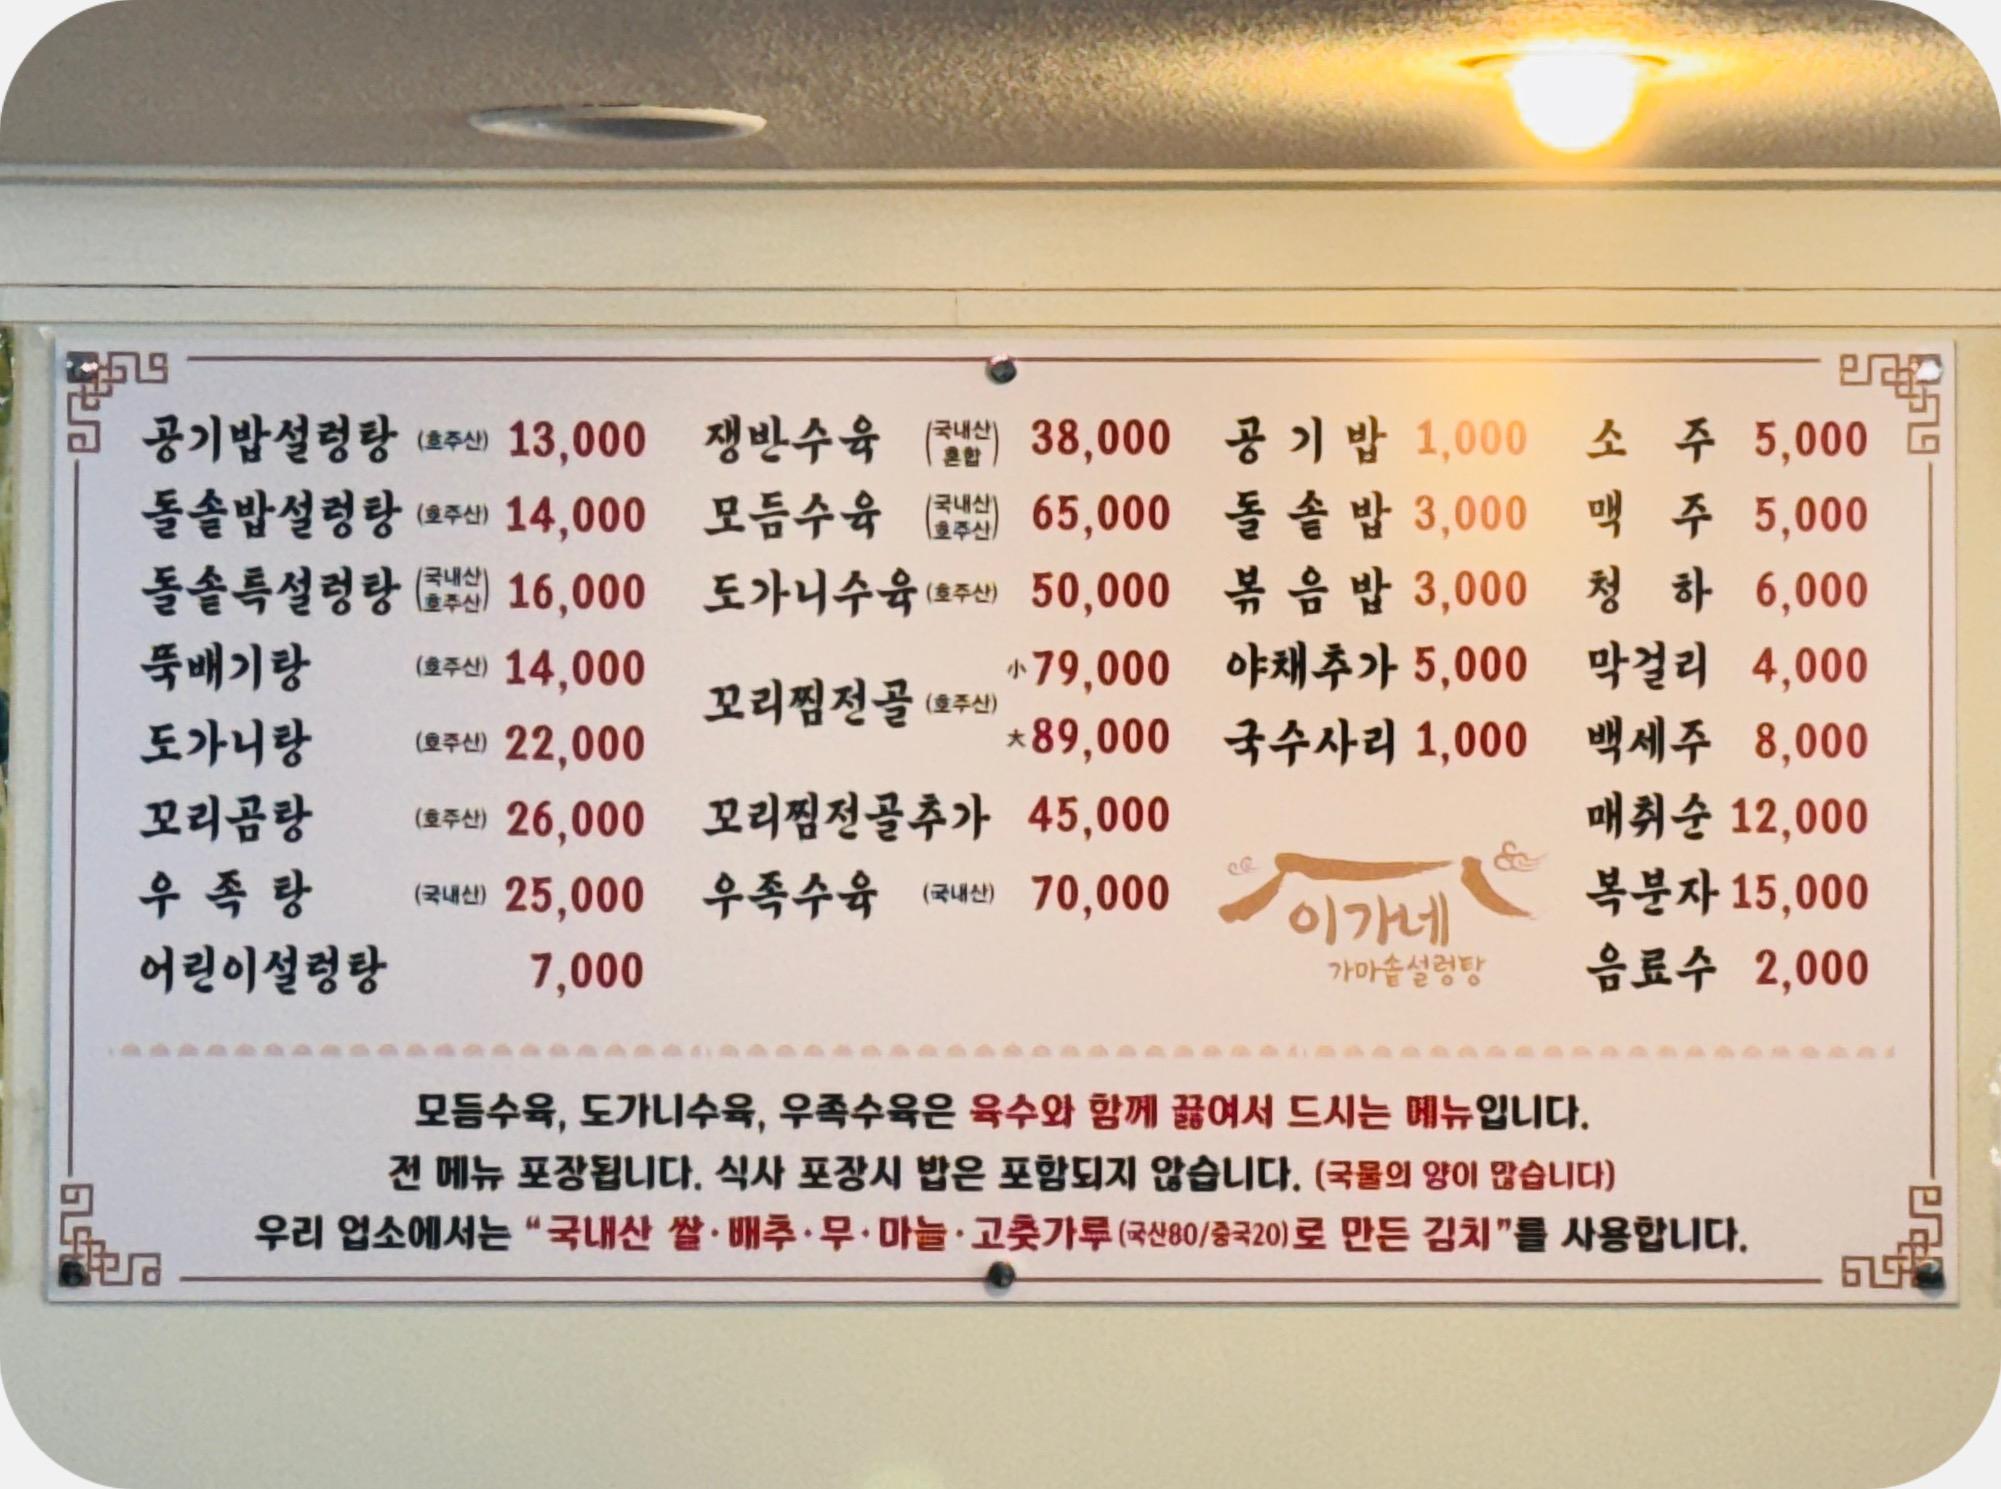 공기밥설렁탕 (호주산) 13,000
돌솥밥설렁탕 (호주산) 14,000
돌솥특설렁탕 (국내산 호주산) 16,000
뚝배기탕 (호주산) 14,000
도가니탕 (호주산) 22,000
꼬리곰탕 (호주산) 26,000
우 족 탕 (국내산) 25,000
어린이설렁탕 7,000
쟁반수육 (국내산 혼합) 38,000
모듬수육 (국내산 호주산) 65,000
도가니수육 (호주산) 50,000
꼬리찜전골 (호주산) 小 79,000
大 89,000
꼬리찜전골추가 45,000
우족수육 (국내산) 70,000
공 기 밥 1,000
돌 솥 밥 3,000
볶 음 밥 3,000
야채추가 5,000
국수사리 1,000
이가네
가마솥설렁탕
소 주 5,000
맥 주 5,000
청 하 6,000
막걸리 4,000
백세주 8,000
매취순 12,000
복분자 15,000
음료수 2,000
모듬수육, 도가니수육, 우족수육은 육수와 함께 끓여서 드시는 메뉴입니다.
전 메뉴 포장됩니다. 식사 포장시 밥은 포함되지 않습니다. (국물의 양이 많습니다)
우리 업소에서는 “국내산 쌀·배추·무·마늘·고춧가루(국산80/중국20)로 만든 김치”를 사용합니다.